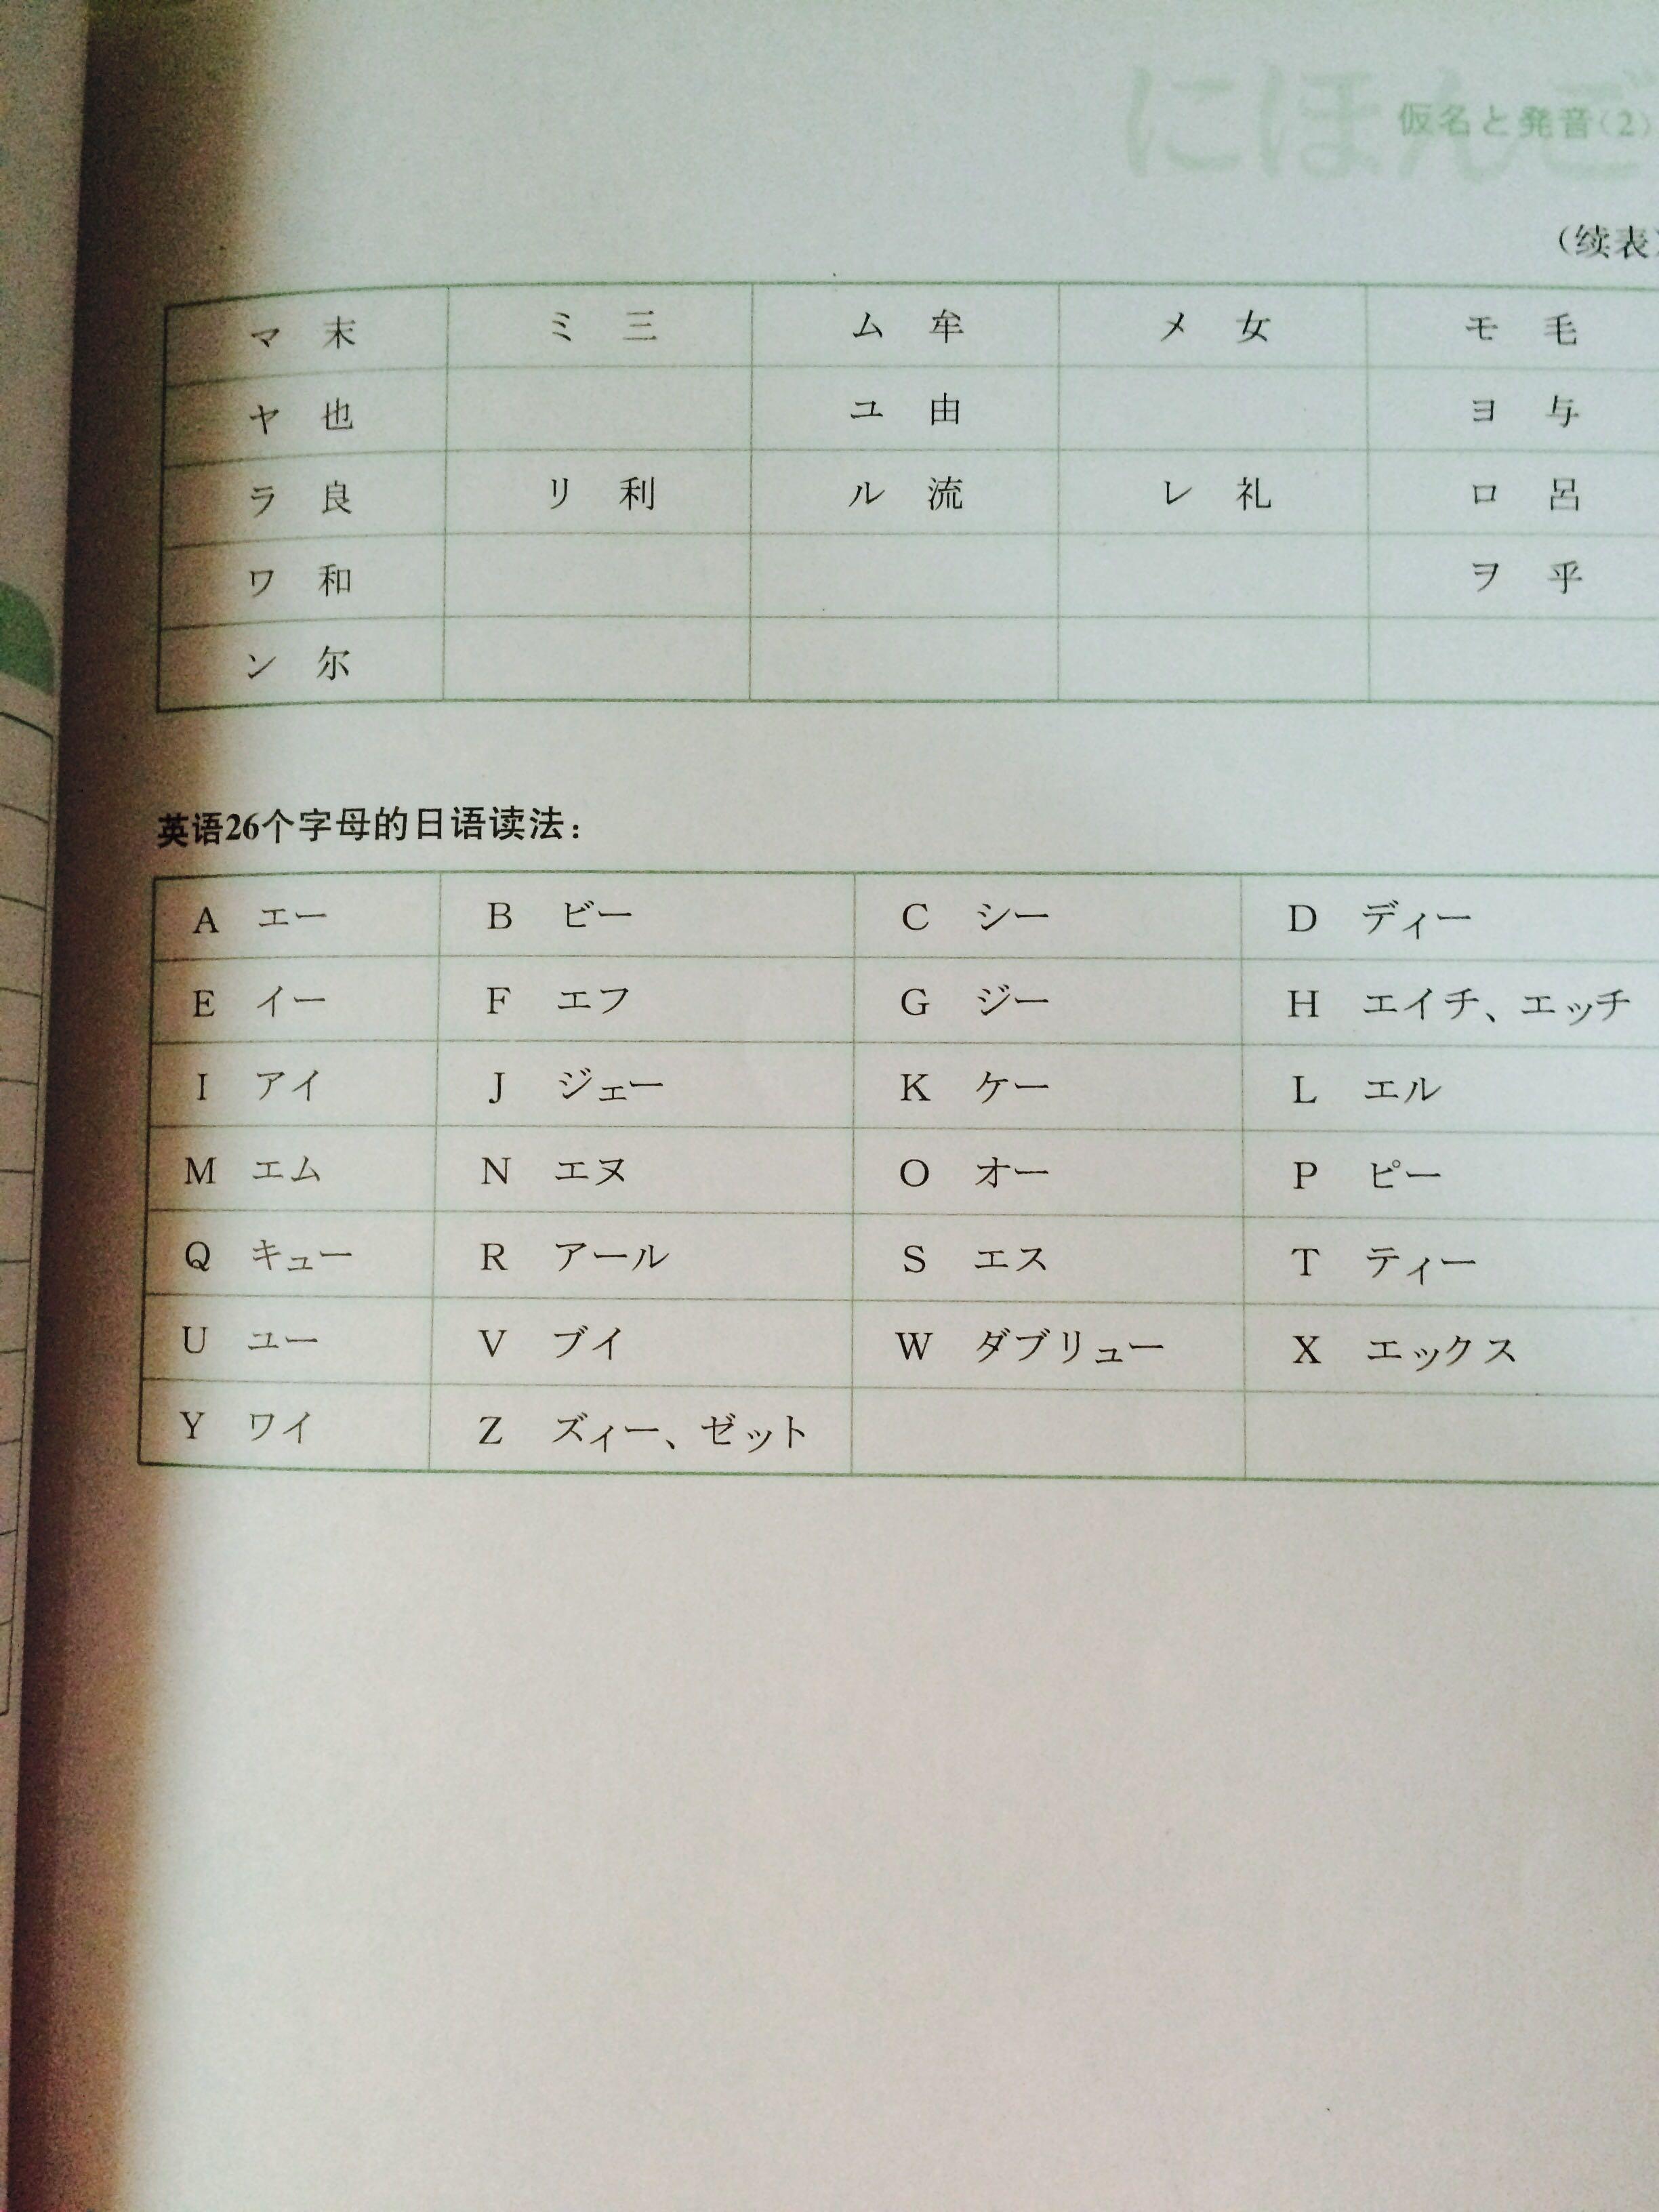 にほんご
仮名と発音(2)
(续表)
マ 末 ミ 三 ム 牟 メ 女 モ 毛
ヤ 也 ユ 由 ヨ 与
ラ 良 リ 利 ル 流 レ 礼 ロ 呂
ワ 和 ヲ 乎
ン 尔
英语26个字母的日语读法：
A エー B ビー C シー D ディー
E イー F エフ G ジー H エイチ、エッチ
I アイ J ジェー K ケー L エル
M エム N エヌ O オー P ピー
Q キュー R アール S エス T ティー
U ユー V ブイ W ダブリュー X エックス
Y ワイ Z ズィー、ゼット